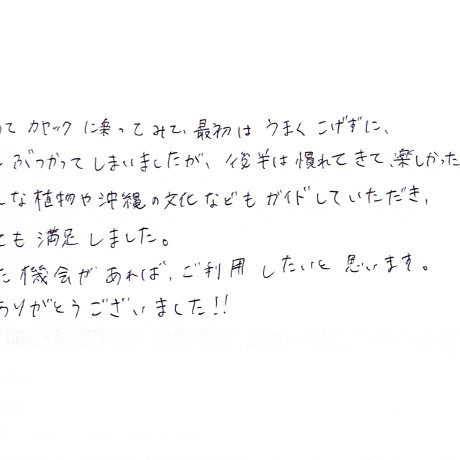 てカヤックに乗ってみて、最初はうまくこげずに、
ぶつかってしまいましたが、後半は慣れてきて、楽しかった
な植物や沖縄の文化などもガイドしていただき、
ても満足しました。
た機会があれば、ご利用したいと思います。
ありがとうございました!!